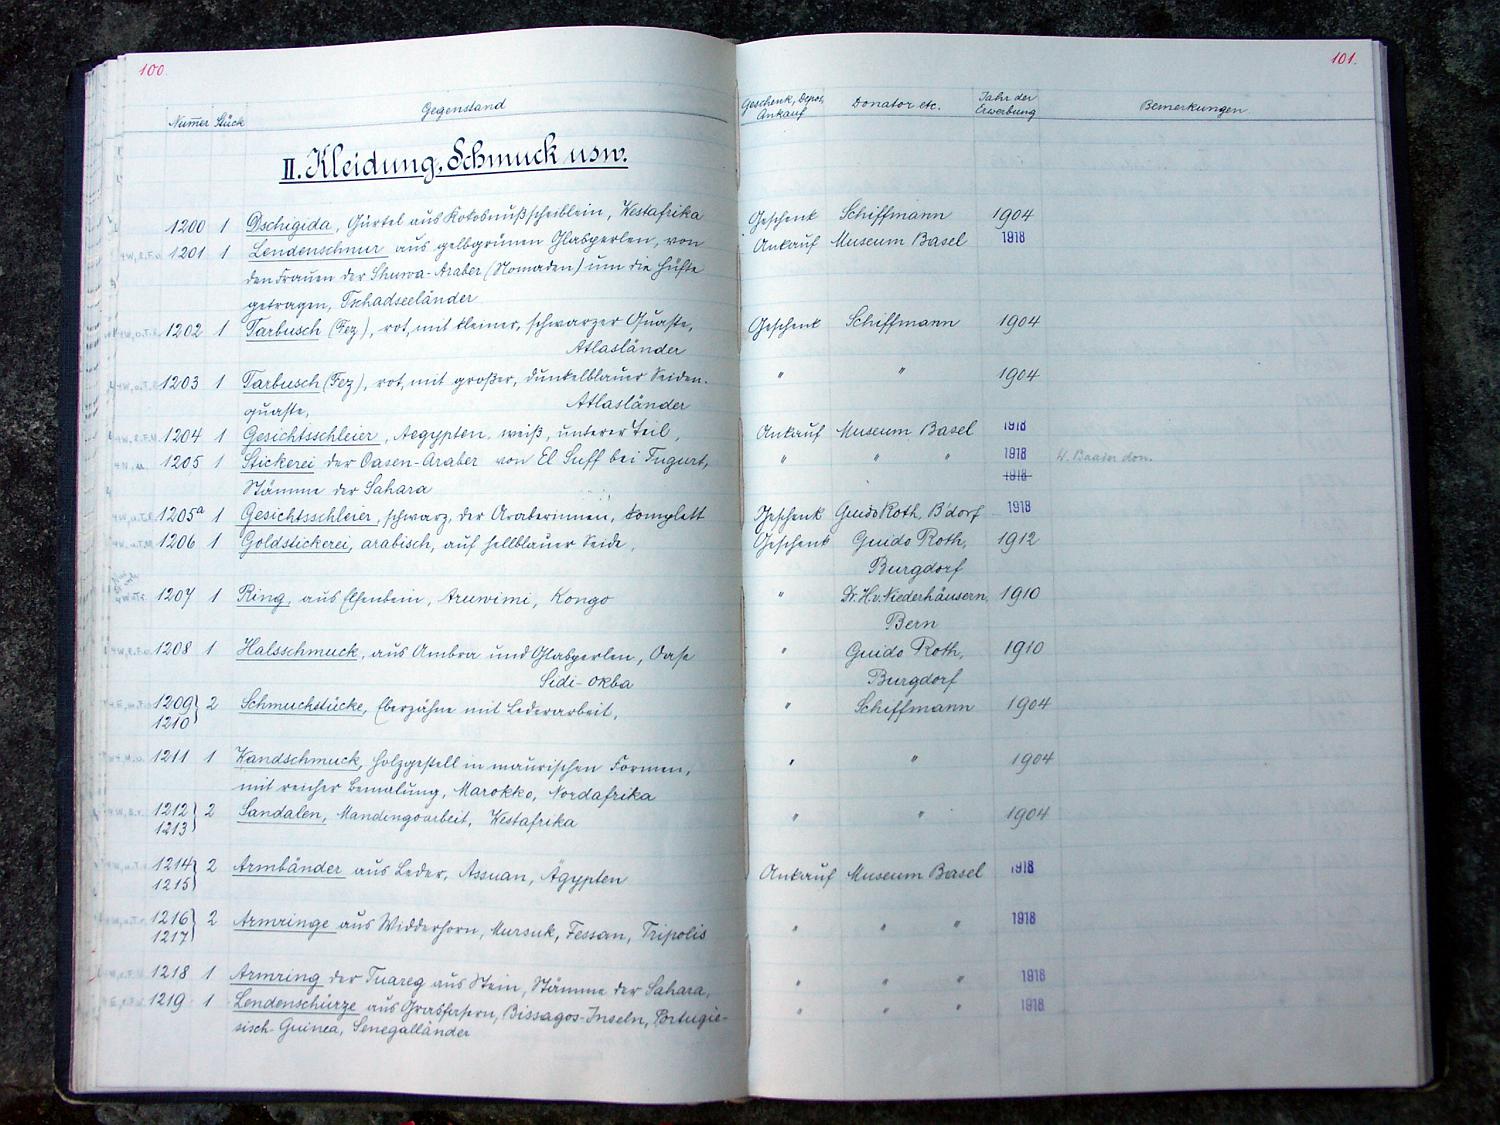 100.
101.
Numer Stück Gegenstand Geschenk, Depos, Ankauf Donator etc. Jahr der Erwerbung Bemerkungen
II. Kleidung, Schmuck usw.
1200 1 Dschigida, Gürtel aus Kokosnußscheiblein, Westafrika Geschenk Schiffmann 1904
1201 1 Lendenschnur aus gelbgrünen Glasperlen, von Ankauf Museum Basel 1918
den Frauen der Shuwa-Araber (Nomaden) um die Hüfte
getragen, Tschadseeländer
1202 1 Tarbusch (Fez), rot, mit kleiner, schwarzer Quaste, Geschenk Schiffmann 1904
Atlasländer
1203 1 Tarbusch (Fez), rot, mit großer, dunkelblauer Seiden- " " 1904
quaste, Atlasländer
1204 1 Gesichtsschleier, Aegypten, weiß, unterer Teil, Ankauf Museum Basel 1918
1205 1 Stickerei der Oasen-Araber von El Suff bei Tugurt, " " " 1918 W. Baader don.
Stämme der Sahara 1918
1205a 1 Gesichtsschleier, schwarz, der Araberinnen, komplett Geschenk Guido Roth, B'dorf 1918
1206 1 Goldstickerei, arabisch, auf hellblauer Seide, Geschenk Guido Roth, 1912
Burgdorf
1207 1 Ring, aus Elfenbein, Aruwimi, Kongo " Dr. H. v. Niederhäusern, 1910
Bern
1208 1 Halsschmuck, aus Ambra und Glasperlen, Oase " Guido Roth, 1910
Sidi-Okba Burgdorf
1209 } 2 Schmuckstücke, Eberzähne mit Lederarbeit, " Schiffmann 1904
1210
1211 1 Wandschmuck, Holzgestell in maurischen Formen, " " 1904
mit reicher Bemalung, Marokko, Nordafrika
1212 } 2 Sandalen, Mandingoarbeit, Westafrika " " 1904
1213
1214 } 2 Armbänder aus Leder, Assuan, Ägypten Ankauf Museum Basel 1918
1215
1216 } 2 Armringe aus Widderhorn, Mursuk, Fessan, Tripolis " " " 1918
1217
1218 1 Armring der Tuareg aus Stein, Stämme der Sahara, " " " 1918
1219 1 Lendenschürze aus Grasfasern, Bissagos-Inseln, Portugie- " " " 1918
sisch-Guinea, Senegalländer